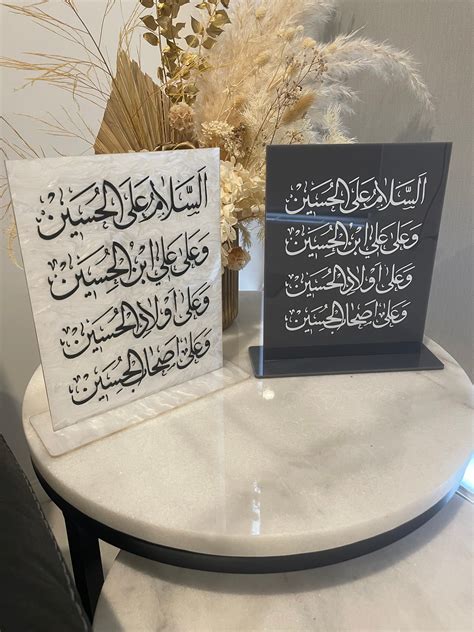 اَلسَّلَامُ عَلَى الْحُسَيْن
وَعَلى عَلِيِّ ابْنِ الْحُسَيْن
وَعَلى اَوْلَادِ الْحُسَيْن
وَعَلى اَصْحَابِ الْحُسَيْن
اَلسَّلَامُ عَلَى الْحُسَيْن
وَعَلى عَلِيِّ ابْنِ الْحُسَيْن
وَعَلى اَوْلَادِ الْحُسَيْن
وَعَلى اَصْحَابِ الْحُسَيْن